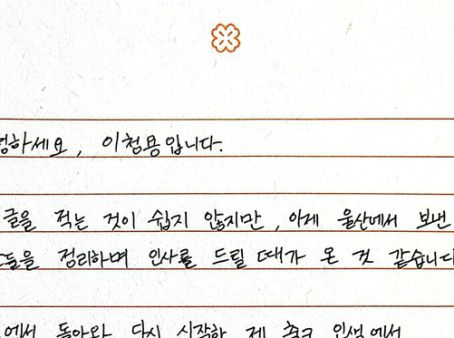 녕하세요, 이청용입니다.
글을 적는 것이 쉽지 않지만, 이제 울산에서 보낸
들을 정리하며 인사를 드릴 때가 온 것 같습니다
에서 돌아와 다시 시작한 제 축구 인생에서